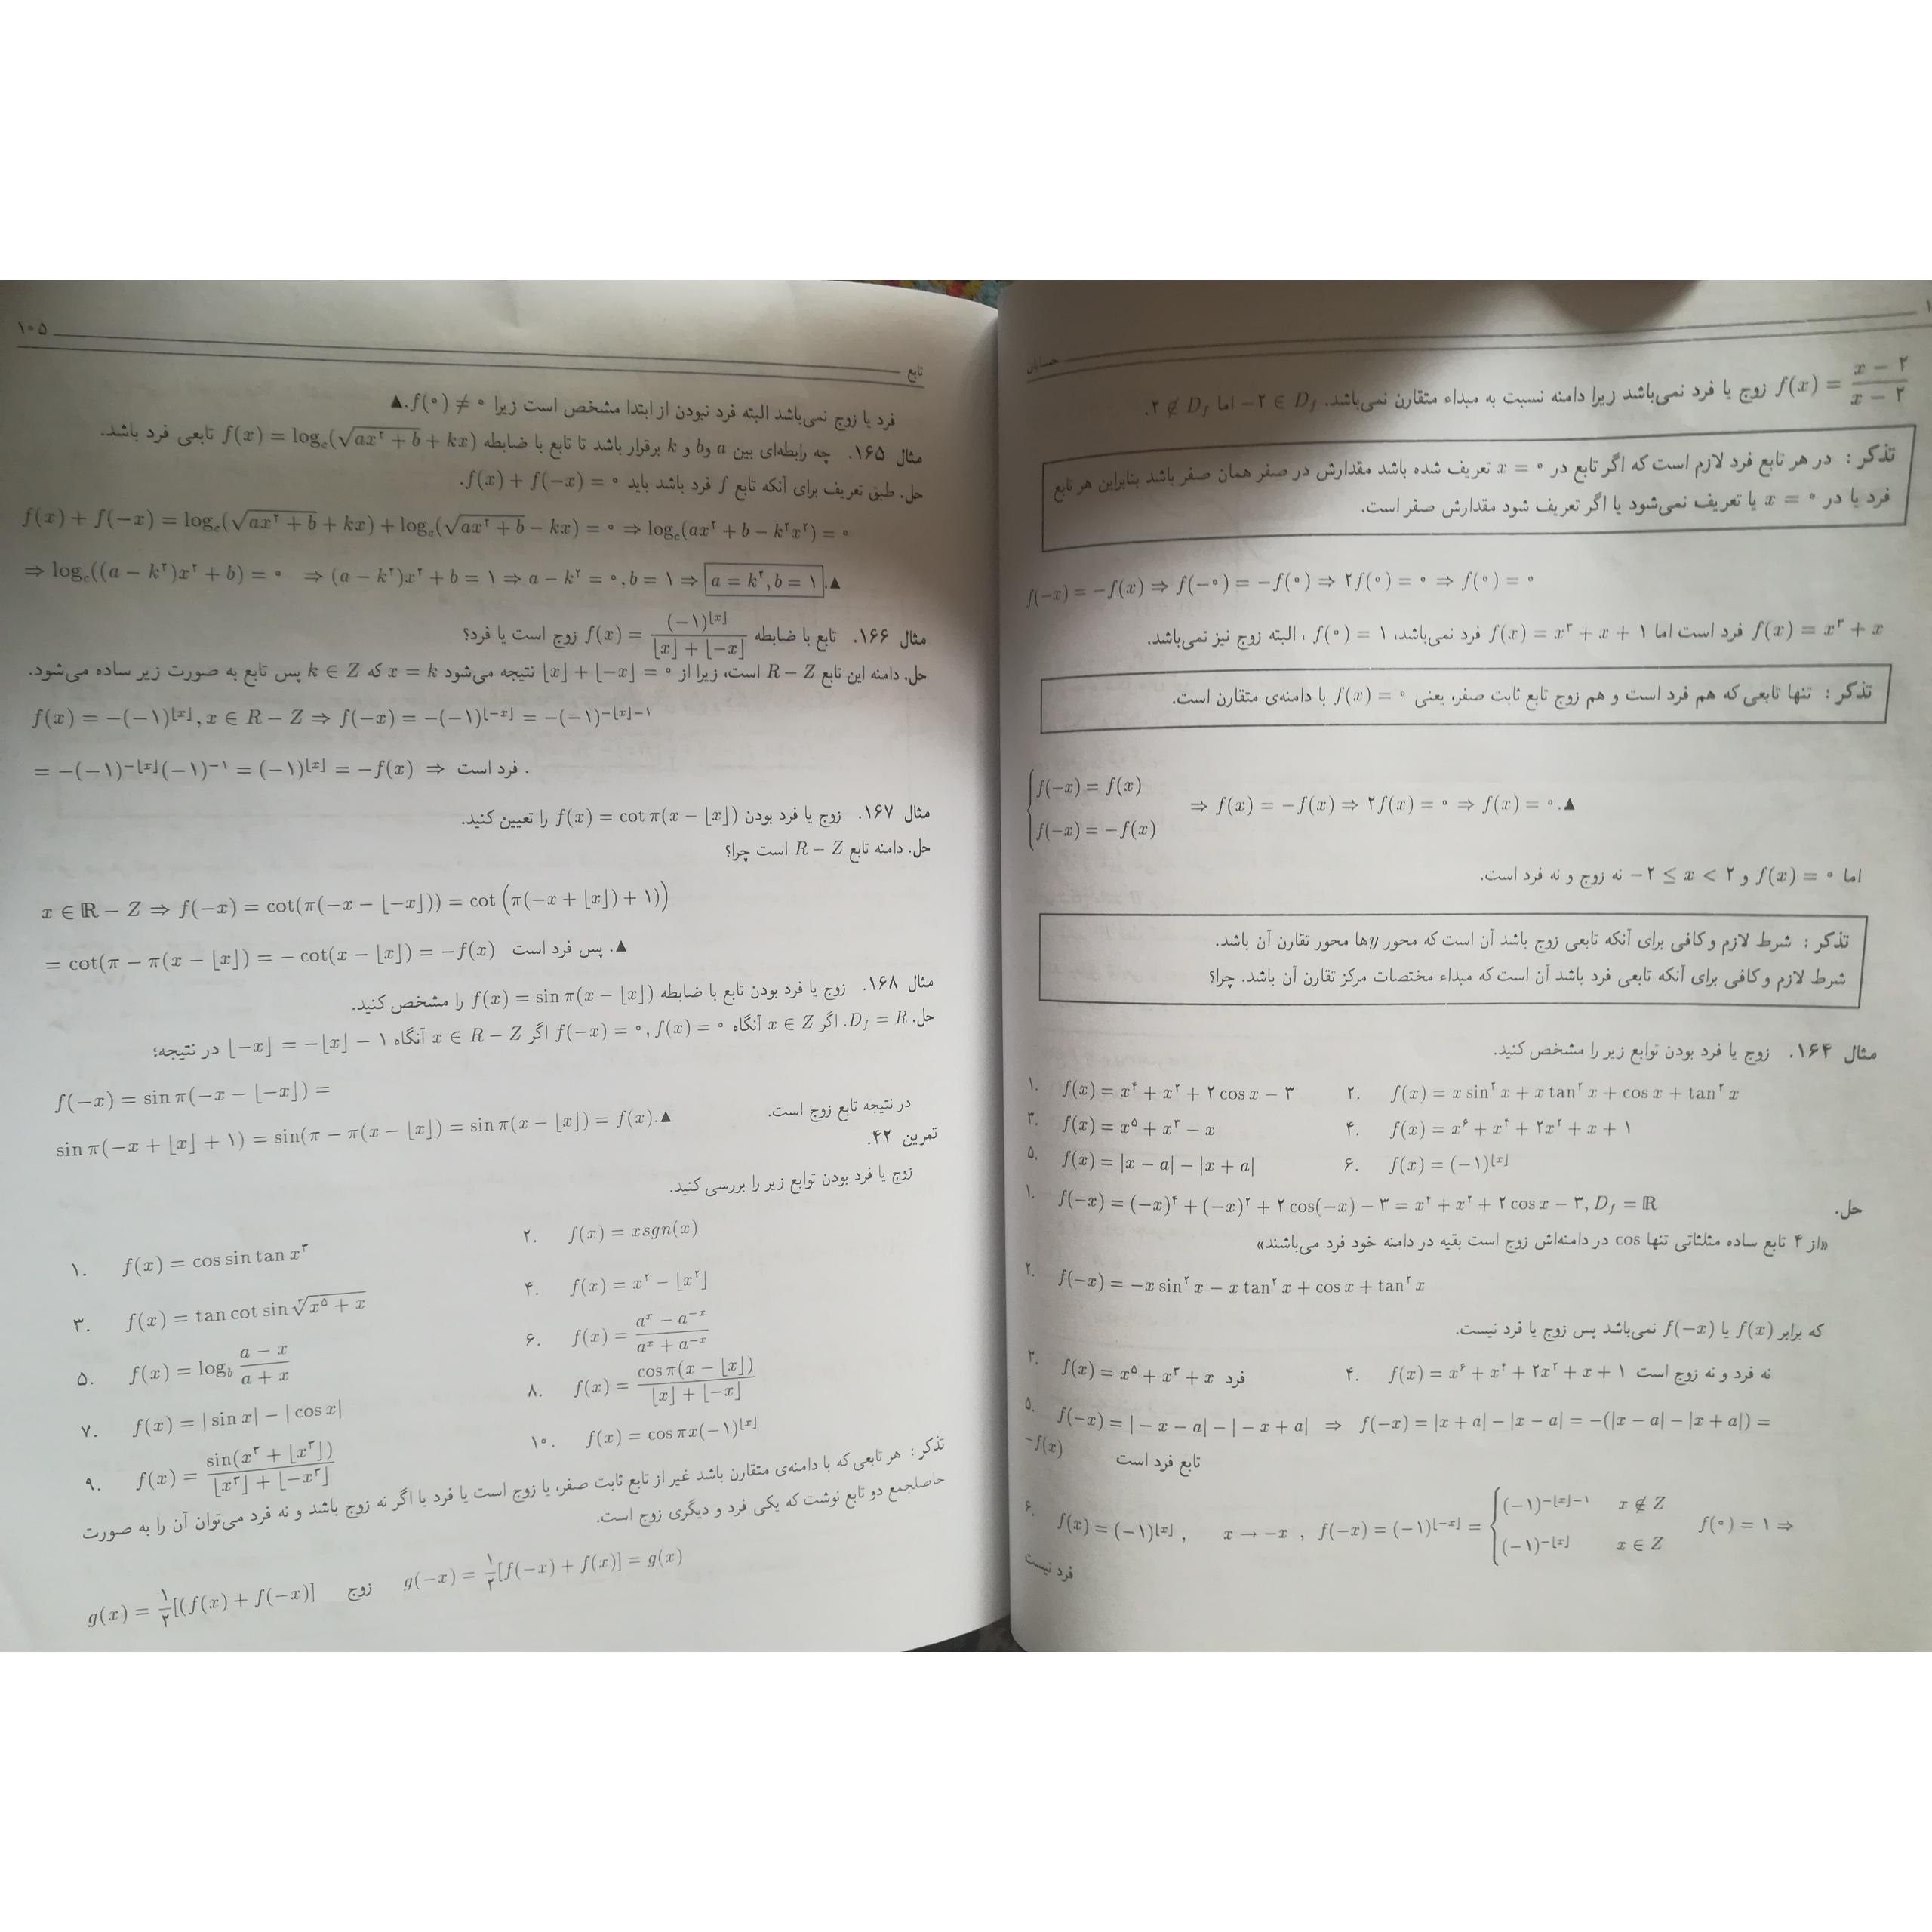 ۱
حسابان
f(x) = \frac{x-۲}{x-۲} زوج یا فرد نمی‌باشد زیرا دامنه نسبت به مبداء متقارن نمی‌باشد. -۲ ∈ D_f اما ۲ ∉ D_f.
تذکر : در هر تابع فرد لازم است که اگر تابع در x = ۰ تعریف شده باشد مقدارش در صفر همان صفر باشد بنابراین هر تابع
فرد یا در x = ۰ یا تعریف نمی‌شود یا اگر تعریف شود مقدارش صفر است.
f(-x) = -f(x) ⇒ f(-۰) = -f(۰) ⇒ ۲f(۰) = ۰ ⇒ f(۰) = ۰
f(x) = x^۳ + x فرد است اما f(x) = x^۳ + x + ۱ فرد نمی‌باشد، f(۰) = ۱ ، البته زوج نیز نمی‌باشد.
تذکر : تنها تابعی که هم فرد است و هم زوج تابع ثابت صفر، یعنی f(x) = ۰ با دامنه‌ی متقارن است.
{ f(-x) = f(x)
f(-x) = -f(x) ⇒ f(x) = -f(x) ⇒ ۲f(x) = ۰ ⇒ f(x) = ۰.▲
اما f(x) = ۰ و -۲ ≤ x < ۲ نه زوج و نه فرد است.
تذکر : شرط لازم و کافی برای آنکه تابعی زوج باشد آن است که محور yها محور تقارن آن باشد.
شرط لازم و کافی برای آنکه تابعی فرد باشد آن است که مبداء مختصات مرکز تقارن آن باشد. چرا؟
مثال ۱۶۴. زوج یا فرد بودن توابع زیر را مشخص کنید.
۱. f(x) = x^۴ + x^۲ + ۲ cos x - ۳ ۲. f(x) = x sin^۲ x + x tan^۲ x + cos x + tan^۲ x
۳. f(x) = x^۵ + x^۳ - x ۴. f(x) = x^۶ + x^۴ + ۲x^۲ + x + ۱
۵. f(x) = |x - a| - |x + a| ۶. f(x) = (-۱)^{⌊x⌋}
حل. ۱. f(-x) = (-x)^۴ + (-x)^۲ + ۲ cos(-x) - ۳ = x^۴ + x^۲ + ۲ cos x - ۳, D_f = ℝ
«از ۴ تابع ساده مثلثاتی تنها cos در دامنه‌اش زوج است بقیه در دامنه خود فرد می‌باشند»
۲. f(-x) = -x sin^۲ x - x tan^۲ x + cos x + tan^۲ x
که برابر f(x) یا f(-x) نمی‌باشد پس زوج یا فرد نیست.
۳. f(x) = x^۵ + x^۳ + x فرد ۴. f(x) = x^۶ + x^۴ + ۲x^۲ + x + ۱ نه فرد و نه زوج است
۵. f(-x) = |-x - a| - |-x + a| ⇒ f(-x) = |x + a| - |x - a| = -(|x - a| - |x + a|) =
-f(x) تابع فرد است
۶. f(x) = (-۱)^{⌊x⌋} , x → -x , f(-x) = (-۱)^{⌊-x⌋} = { (-۱)^{-⌊x⌋-۱} x ∉ Z
(-۱)^{-⌊x⌋} x ∈ Z f(۰) = ۱ ⇒
فرد نیست
۱۰۵
تابع
فرد یا زوج نمی‌باشد البته فرد نبودن از ابتدا مشخص است زیرا f(۰) ≠ ۰.▲
مثال ۱۶۵. چه رابطه‌ای بین a و b و k برقرار باشد تا تابع با ضابطه f(x) = log_c(√(ax^۲ + b) + kx) تابعی فرد باشد.
حل. طبق تعریف برای آنکه تابع f فرد باشد باید f(x) + f(-x) = ۰.
f(x) + f(-x) = log_c(√(ax^۲ + b) + kx) + log_c(√(ax^۲ + b) - kx) = ۰ ⇒ log_c(ax^۲ + b - k^۲x^۲) = ۰
⇒ log_c((a - k^۲)x^۲ + b) = ۰ ⇒ (a - k^۲)x^۲ + b = ۱ ⇒ a - k^۲ = ۰, b = ۱ ⇒ a = k^۲, b = ۱.▲
مثال ۱۶۶. تابع با ضابطه f(x) = \frac{(-۱)^{⌊x⌋}}{⌊x⌋ + ⌊-x⌋} زوج است یا فرد؟
حل. دامنه این تابع R - Z است، زیرا از ⌊x⌋ + ⌊-x⌋ = ۰ نتیجه می‌شود x = k که k ∈ Z پس تابع به صورت زیر ساده می‌شود.
f(x) = -(-۱)^{⌊x⌋}, x ∈ R - Z ⇒ f(-x) = -(-۱)^{⌊-x⌋} = -(-۱)^{-⌊x⌋-۱}
= -(-۱)^{-⌊x⌋}(-۱)^{-۱} = (-۱)^{⌊x⌋} = -f(x) ⇒ فرد است .
مثال ۱۶۷. زوج یا فرد بودن f(x) = cot π(x - ⌊x⌋) را تعیین کنید.
حل. دامنه تابع R - Z است چرا؟
x ∈ ℝ - Z ⇒ f(-x) = cot(π(-x - ⌊-x⌋)) = cot (π(-x + ⌊x⌋) + ۱))
= cot(π - π(x - ⌊x⌋) = - cot(x - ⌊x⌋) = -f(x) پس فرد است .▲
مثال ۱۶۸. زوج یا فرد بودن تابع با ضابطه f(x) = sin π(x - ⌊x⌋) را مشخص کنید.
حل. D_f = R. اگر x ∈ Z آنگاه f(-x) = ۰, f(x) = ۰ اگر x ∈ R - Z آنگاه ⌊-x⌋ = -⌊x⌋ - ۱ در نتیجه؛
f(-x) = sin π(-x - ⌊-x⌋) =
sin π(-x + ⌊x⌋ + ۱) = sin(π - π(x - ⌊x⌋) = sin π(x - ⌊x⌋) = f(x).▲ در نتیجه تابع زوج است.
تمرین ۴۲.
زوج یا فرد بودن توابع زیر را بررسی کنید.
۱. f(x) = cos sin tan x^۳ ۲. f(x) = xsgn(x)
۳. f(x) = tan cot sin ∛(x^۵ + x) ۴. f(x) = x^۲ - ⌊x^۲⌋
۵. f(x) = log_b \frac{a - x}{a + x} ۶. f(x) = \frac{a^x - a^{-x}}{a^x + a^{-x}}
۷. f(x) = | sin x| - | cos x| ۸. f(x) = \frac{cos π(x - ⌊x⌋)}{⌊x⌋ + ⌊-x⌋}
۹. f(x) = \frac{sin(x^۳ + ⌊x^۳⌋)}{⌊x^۳⌋ + ⌊-x^۳⌋} ۱۰. f(x) = cos πx(-۱)^{⌊x⌋}
تذکر : هر تابعی که با دامنه‌ی متقارن باشد غیر از تابع ثابت صفر، یا زوج است یا فرد یا اگر نه زوج باشد و نه فرد می‌توان آن را به صورت
حاصلجمع دو تابع نوشت که یکی فرد و دیگری زوج است.
g(x) = \frac{۱}{۲}[(f(x) + f(-x)] زوج g(-x) = \frac{۱}{۲}[f(-x) + f(x)] = g(x)